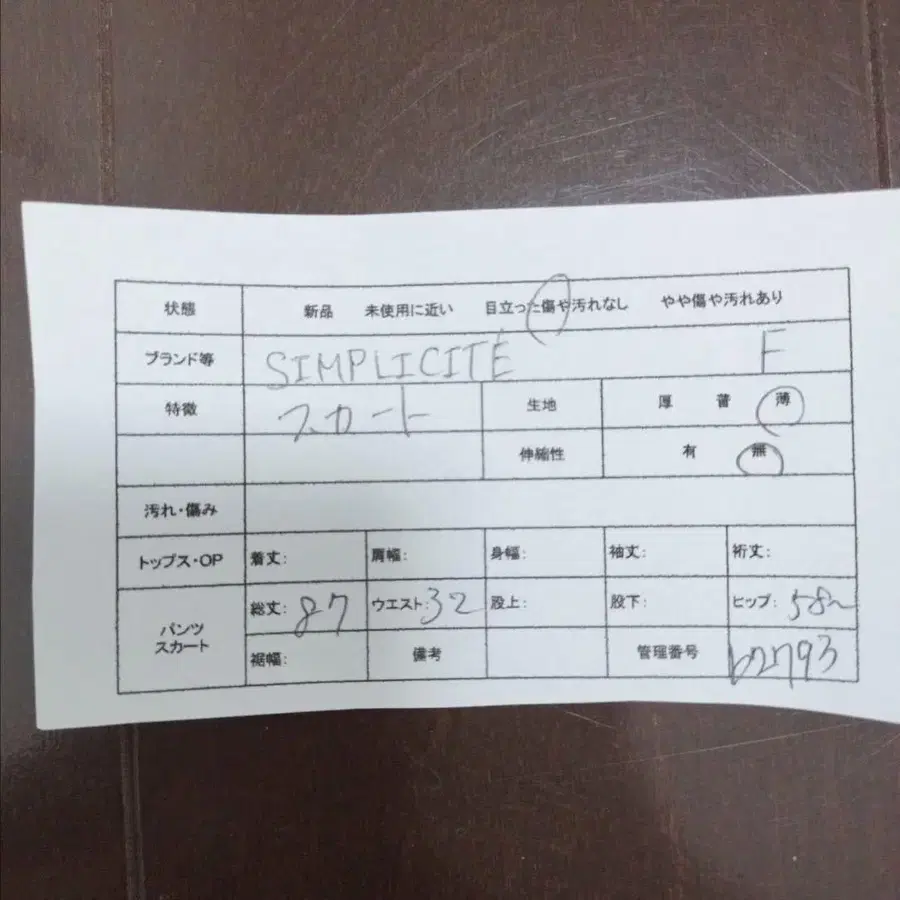 状態 新品 未使用に近い 目立った傷や汚れなし やや傷や汚れあり
ブランド等 SIMPLICITÉ F
特徴 スカート 生地 厚 普 薄
伸縮性 有 無
汚れ・傷み
トップス・OP 着丈: 肩幅: 身幅: 袖丈: 裄丈:
パンツ スカート 総丈: 87 ウエスト: 32 股上: 股下: ヒップ: 58~
裾幅: 備考 管理番号 b2793